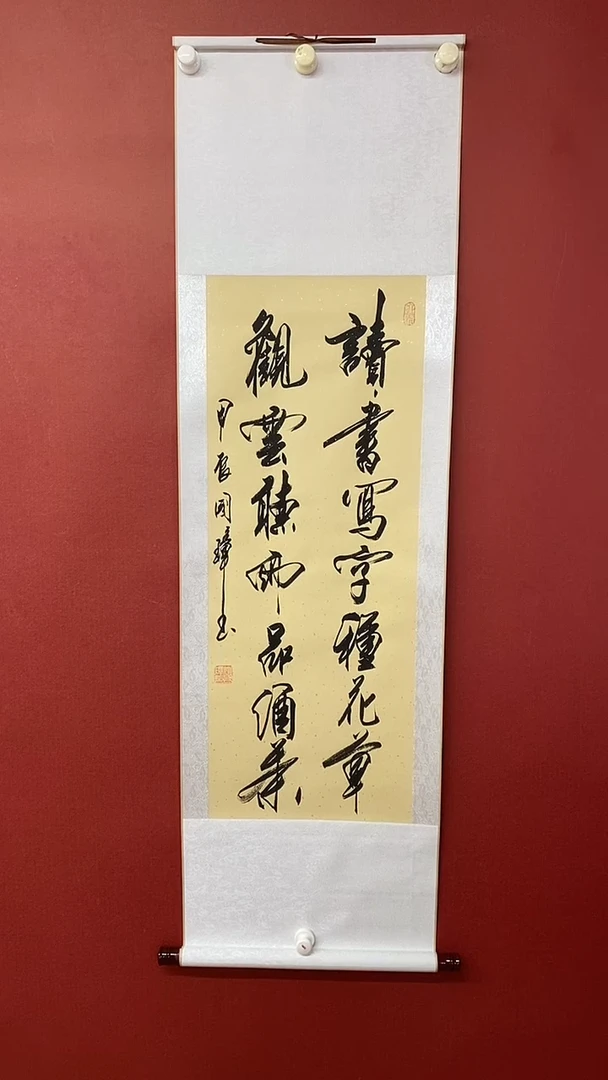 讀書寫字種花草
觀雲聽雨品酒茶
甲辰國璋書